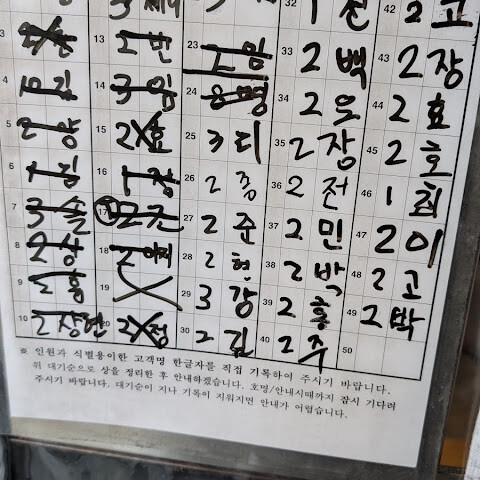 32 1 전
42 2 고
33 2 백
43 2 장
23 2 맘
34 2 으
44 2 효
24 8 명
25 3 리
35 2 장
45 2 호
26 2 종
36 2 전
46 1 최
27 2 준
37 2 민
47 2 이
28 2 현
38 2 박
48 2 고
29 3 강
39 2 홍
49 2 박
30 2 김
40 2 주
50
13 2 반
14 3 임
5 2 양
15 2 효
6 1 김
16 1 장
7 3 솔
17
8 2 상
18 2
9 2 홍
19
10 2 상현
20 2 정
※ 인원과 식별용이한 고객명 한글자를 직접 기록하여 주시기 바랍니다.
위 대기순으로 상을 정리한 후 안내하겠습니다. 호명/안내시때까지 잠시 기다려
주시기 바랍니다. 대기순이 지나 기록이 지워지면 안내가 어렵습니다.